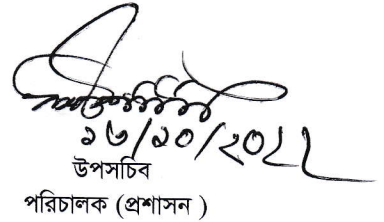 ১৬/১০/২০২২
উপসচিব
পরিচালক (প্রশাসন )